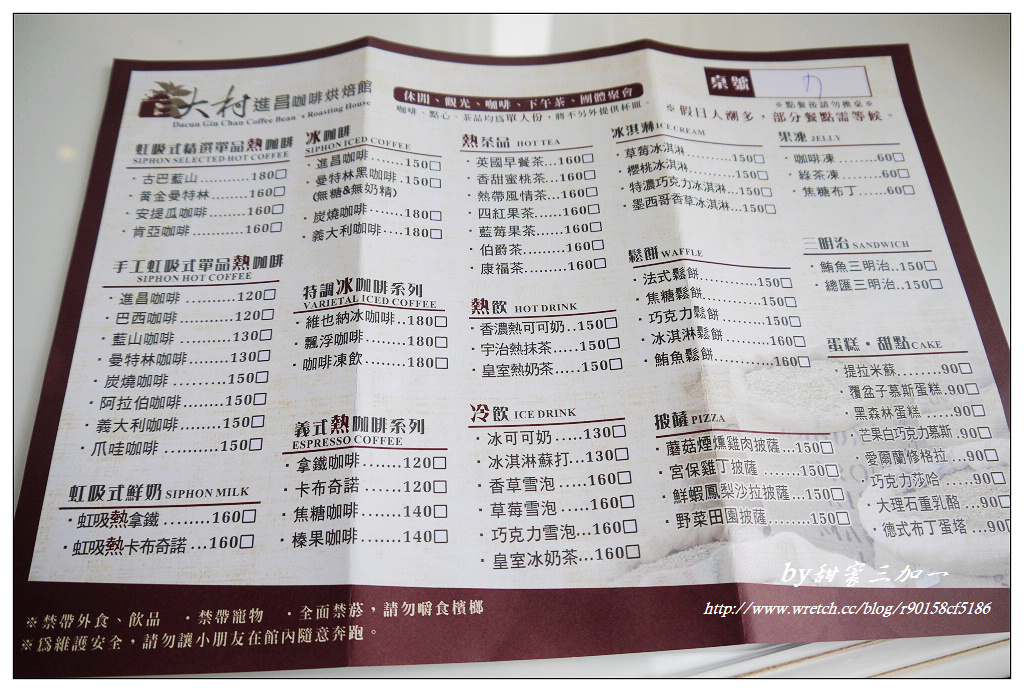 大村 進昌咖啡烘焙館
Dacun Gin Chan Coffee Bean's Roasting House
休閒、觀光、咖啡、下午茶、團體聚會
咖啡、點心、茶品均為單人份，將不另外提供杯皿。
桌號
※點餐後請勿換桌※
※假日人潮多，部分餐點需等候。
虹吸式精選單品熱咖啡
SIPHON SELECTED HOT COFFEE
·古巴藍山........180□
·黃金曼特林......160□
·安提瓜咖啡......160□
·肯亞咖啡........160□
手工虹吸式單品熱咖啡
SIPHON HOT COFFEE
·進昌咖啡..........120□
·巴西咖啡..........120□
·藍山咖啡..........130□
·曼特林咖啡........130□
·炭燒咖啡..........150□
·阿拉伯咖啡........150□
·義大利咖啡........150□
·爪哇咖啡..........150□
虹吸式鮮奶 SIPHON MILK
·虹吸熱拿鐵........160□
·虹吸熱卡布奇諾...160□
冰咖啡
SIPHON ICED COFFEE
·進昌咖啡......150□
·曼特林黑咖啡.150□
(無糖&無奶精)
·炭燒咖啡......180□
·義大利咖啡....180□
特調冰咖啡系列
VARIETAL ICED COFFEE
·維也納冰咖啡..180□
·飄浮咖啡......180□
·咖啡凍飲......180□
義式熱咖啡系列
ESPRESSO COFFEE
·拿鐵咖啡......120□
·卡布奇諾......120□
·焦糖咖啡......140□
·榛果咖啡......140□
熱茶品 HOT TEA
·英國早餐茶...160□
·香甜蜜桃茶...160□
·熱帶風情茶...160□
·四紅果茶......160□
·藍莓果茶......160□
·伯爵茶.........160□
·康福茶.........160□
熱飲 HOT DRINK
·香濃熱可可奶..150□
·宇治熱抹茶.....150□
·皇室熱奶茶.....150□
冷飲 ICE DRINK
·冰可可奶.....130□
·冰淇淋蘇打...130□
·香草雪泡.....160□
·草莓雪泡.....160□
·巧克力雪泡...160□
·皇室冰奶茶...160□
冰淇淋 ICE CREAM
·草莓冰淇淋.........150□
·櫻桃冰淇淋.........150□
·特濃巧克力冰淇淋...150□
·墨西哥香草冰淇淋...150□
鬆餅 WAFFLE
·法式鬆餅............150□
·焦糖鬆餅............150□
·巧克力鬆餅..........150□
·冰淇淋鬆餅..........160□
·鮪魚鬆餅............160□
披薩 PIZZA
·蘑菇煙燻雞肉披薩...150□
·宮保雞丁披薩.......150□
·鮮蝦鳳梨沙拉披薩...150□
·野菜田園披薩.......150□
果凍 JELLY
·咖啡凍.......60□
·綠茶凍.......60□
·焦糖布丁.....60□
三明治 SANDWICH
·鮪魚三明治..150□
·總匯三明治..150□
蛋糕·甜點 CAKE
·提拉米蘇........90□
·覆盆子慕斯蛋糕.90□
·黑森林蛋糕......90□
·芒果白巧克力慕斯.90□
·愛爾蘭修格拉...90□
·巧克力莎哈.....90□
·大理石重乳酪...90□
·德式布丁蛋塔...90□
※禁帶外食、飲品 ·禁帶寵物 ·全面禁菸，請勿嚼食檳榔
※為維護安全，請勿讓小朋友在館內隨意奔跑。
by甜蜜三加一
http://www.wretch.cc/blog/r90158cf5186